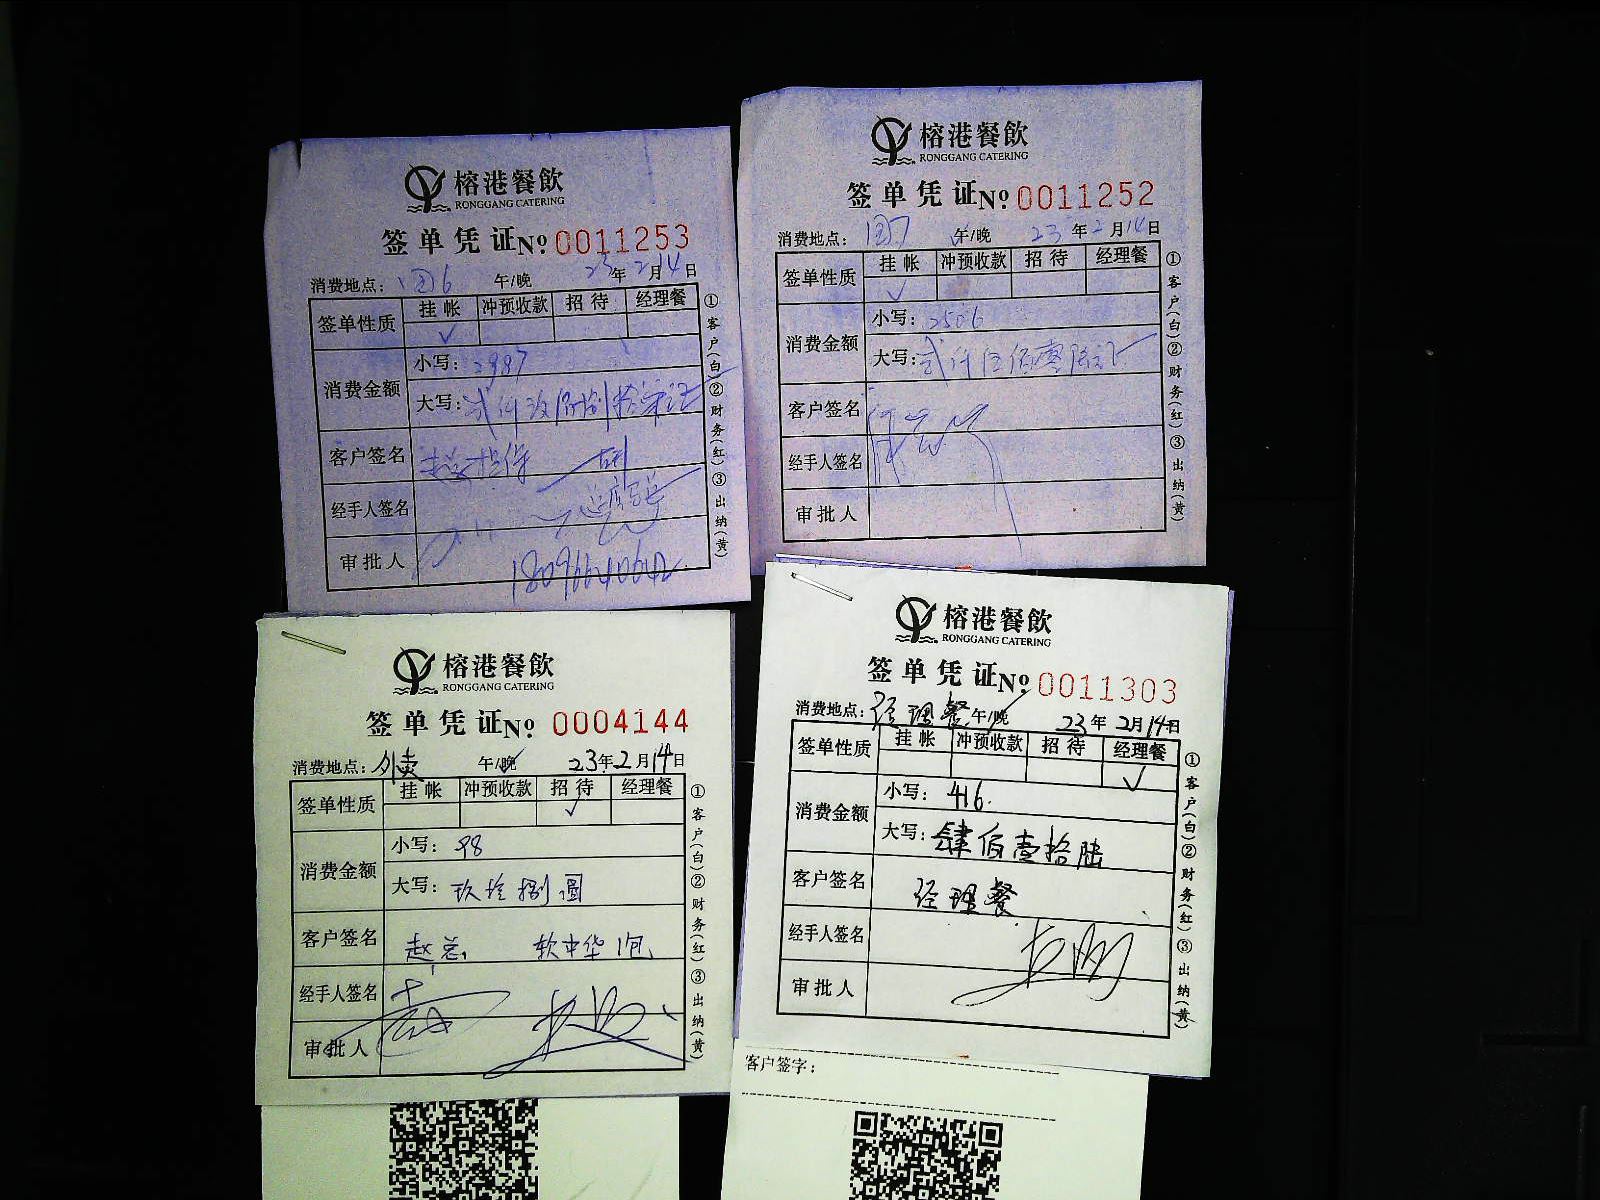 榕港餐飲
RONGGANG CATERING
签单凭证 Nº 0011253
消费地点: 午/晚 23年2月14日
签单性质 挂帐 冲预收款 招待 经理餐
✓
消费金额 小写: 2987
大写: 贰仟玖佰捌拾柒
客户签名
经手人签名
审批人
①客户(白)②财务(红)③出纳(黄)
榕港餐飲
RONGGANG CATERING
签单凭证 Nº 0011252
消费地点: 午/晚 23年2月14日
签单性质 挂帐 冲预收款 招待 经理餐
✓
消费金额 小写: 2506
大写: 贰仟伍佰零陆元
客户签名
经手人签名
审批人
①客户(白)②财务(红)③出纳(黄)
榕港餐飲
RONGGANG CATERING
签单凭证 Nº 0004144
消费地点: 外卖 午/晚 23年2月14日
签单性质 挂帐 冲预收款 招待 经理餐
✓
消费金额 小写: 98
大写: 玖拾捌圆
客户签名 赵总, 软中华1包
经手人签名
审批人
①客户(白)②财务(红)③出纳(黄)
榕港餐飲
RONGGANG CATERING
签单凭证 Nº 0011303
消费地点: 经理餐 午/晚 23年2月14日
签单性质 挂帐 冲预收款 招待 经理餐
✓
消费金额 小写: 416.
大写: 肆佰壹拾陆
客户签名 经理餐
经手人签名
审批人
①客户(白)②财务(红)③出纳(黄)
客户签字: